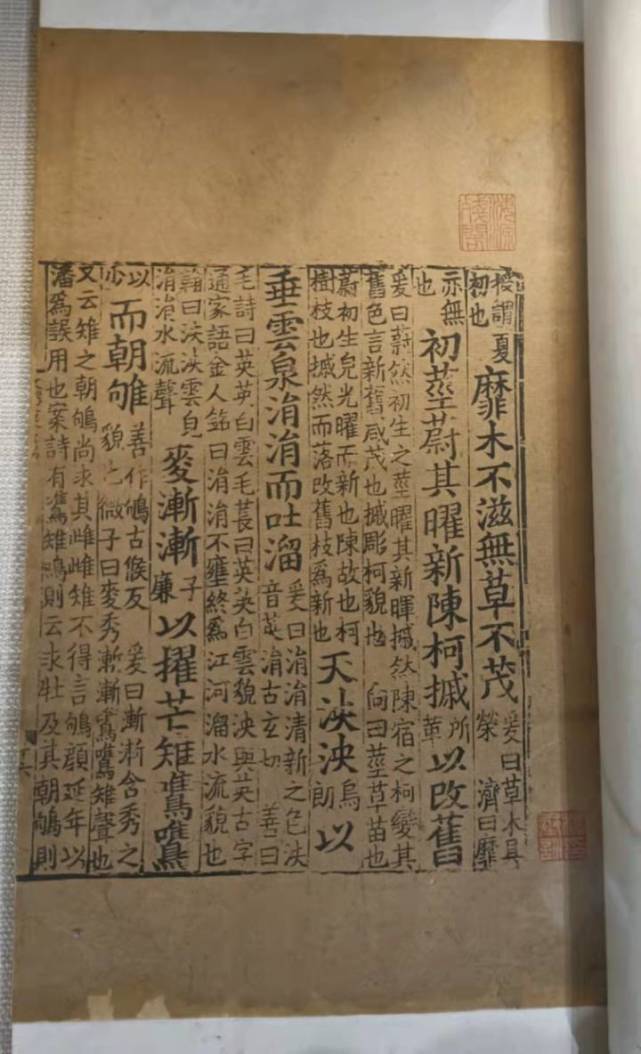 授謂
初也
夏靡木不滋無草不茂
爰曰草木具
榮 濟曰靡
亦無
也
初莖蔚其曜新陳柯槭
所
革
以改舊
爰曰蔚然初生之莖曜其新暉槭然陳宿之柯變其
舊色言新舊咸茂也槭彫柯貌也 向曰莖草苗也
蔚初生皃光曜而新也陳故也柯
樹枝也槭然而落改舊枝為新也
天泱泱
烏
朗
以
垂雲泉涓涓而吐溜
爰曰涓涓清新之色泱
音英 涓古玄切 善曰
毛詩曰英英白雲毛萇曰英英白雲貌泱與英古字
通家語金人銘曰涓涓不壅終為江河溜水流貌也
翰曰泱泱雲皃
涓涓水流聲
麥漸漸
子
廉
以擢芒雉鷕鷕
以
少
而朝鴝
善作鴝古候反 爰曰漸漸含秀之
貌也微子曰麥秀漸漸鷕鷕雉聲也
又云雉之朝鴝尚求其雌雌雉不得言鴝顏延年以
潘為誤用也案詩有鷕雉鳴則云求牡及其朝鴝則